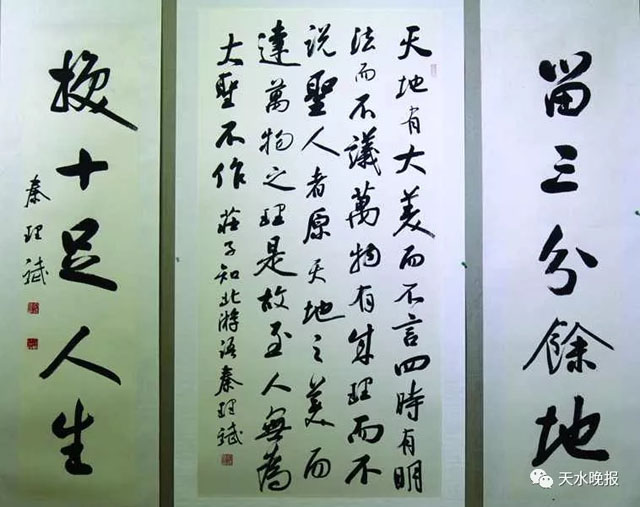 留三分餘地
天地有大美而不言四時有明
法而不議萬物有成理而不
說聖人者原天地之美而
達萬物之理是故至人無為
大聖不作 莊子知北游語秦理斌
換十足人生
秦理斌
天水晚报